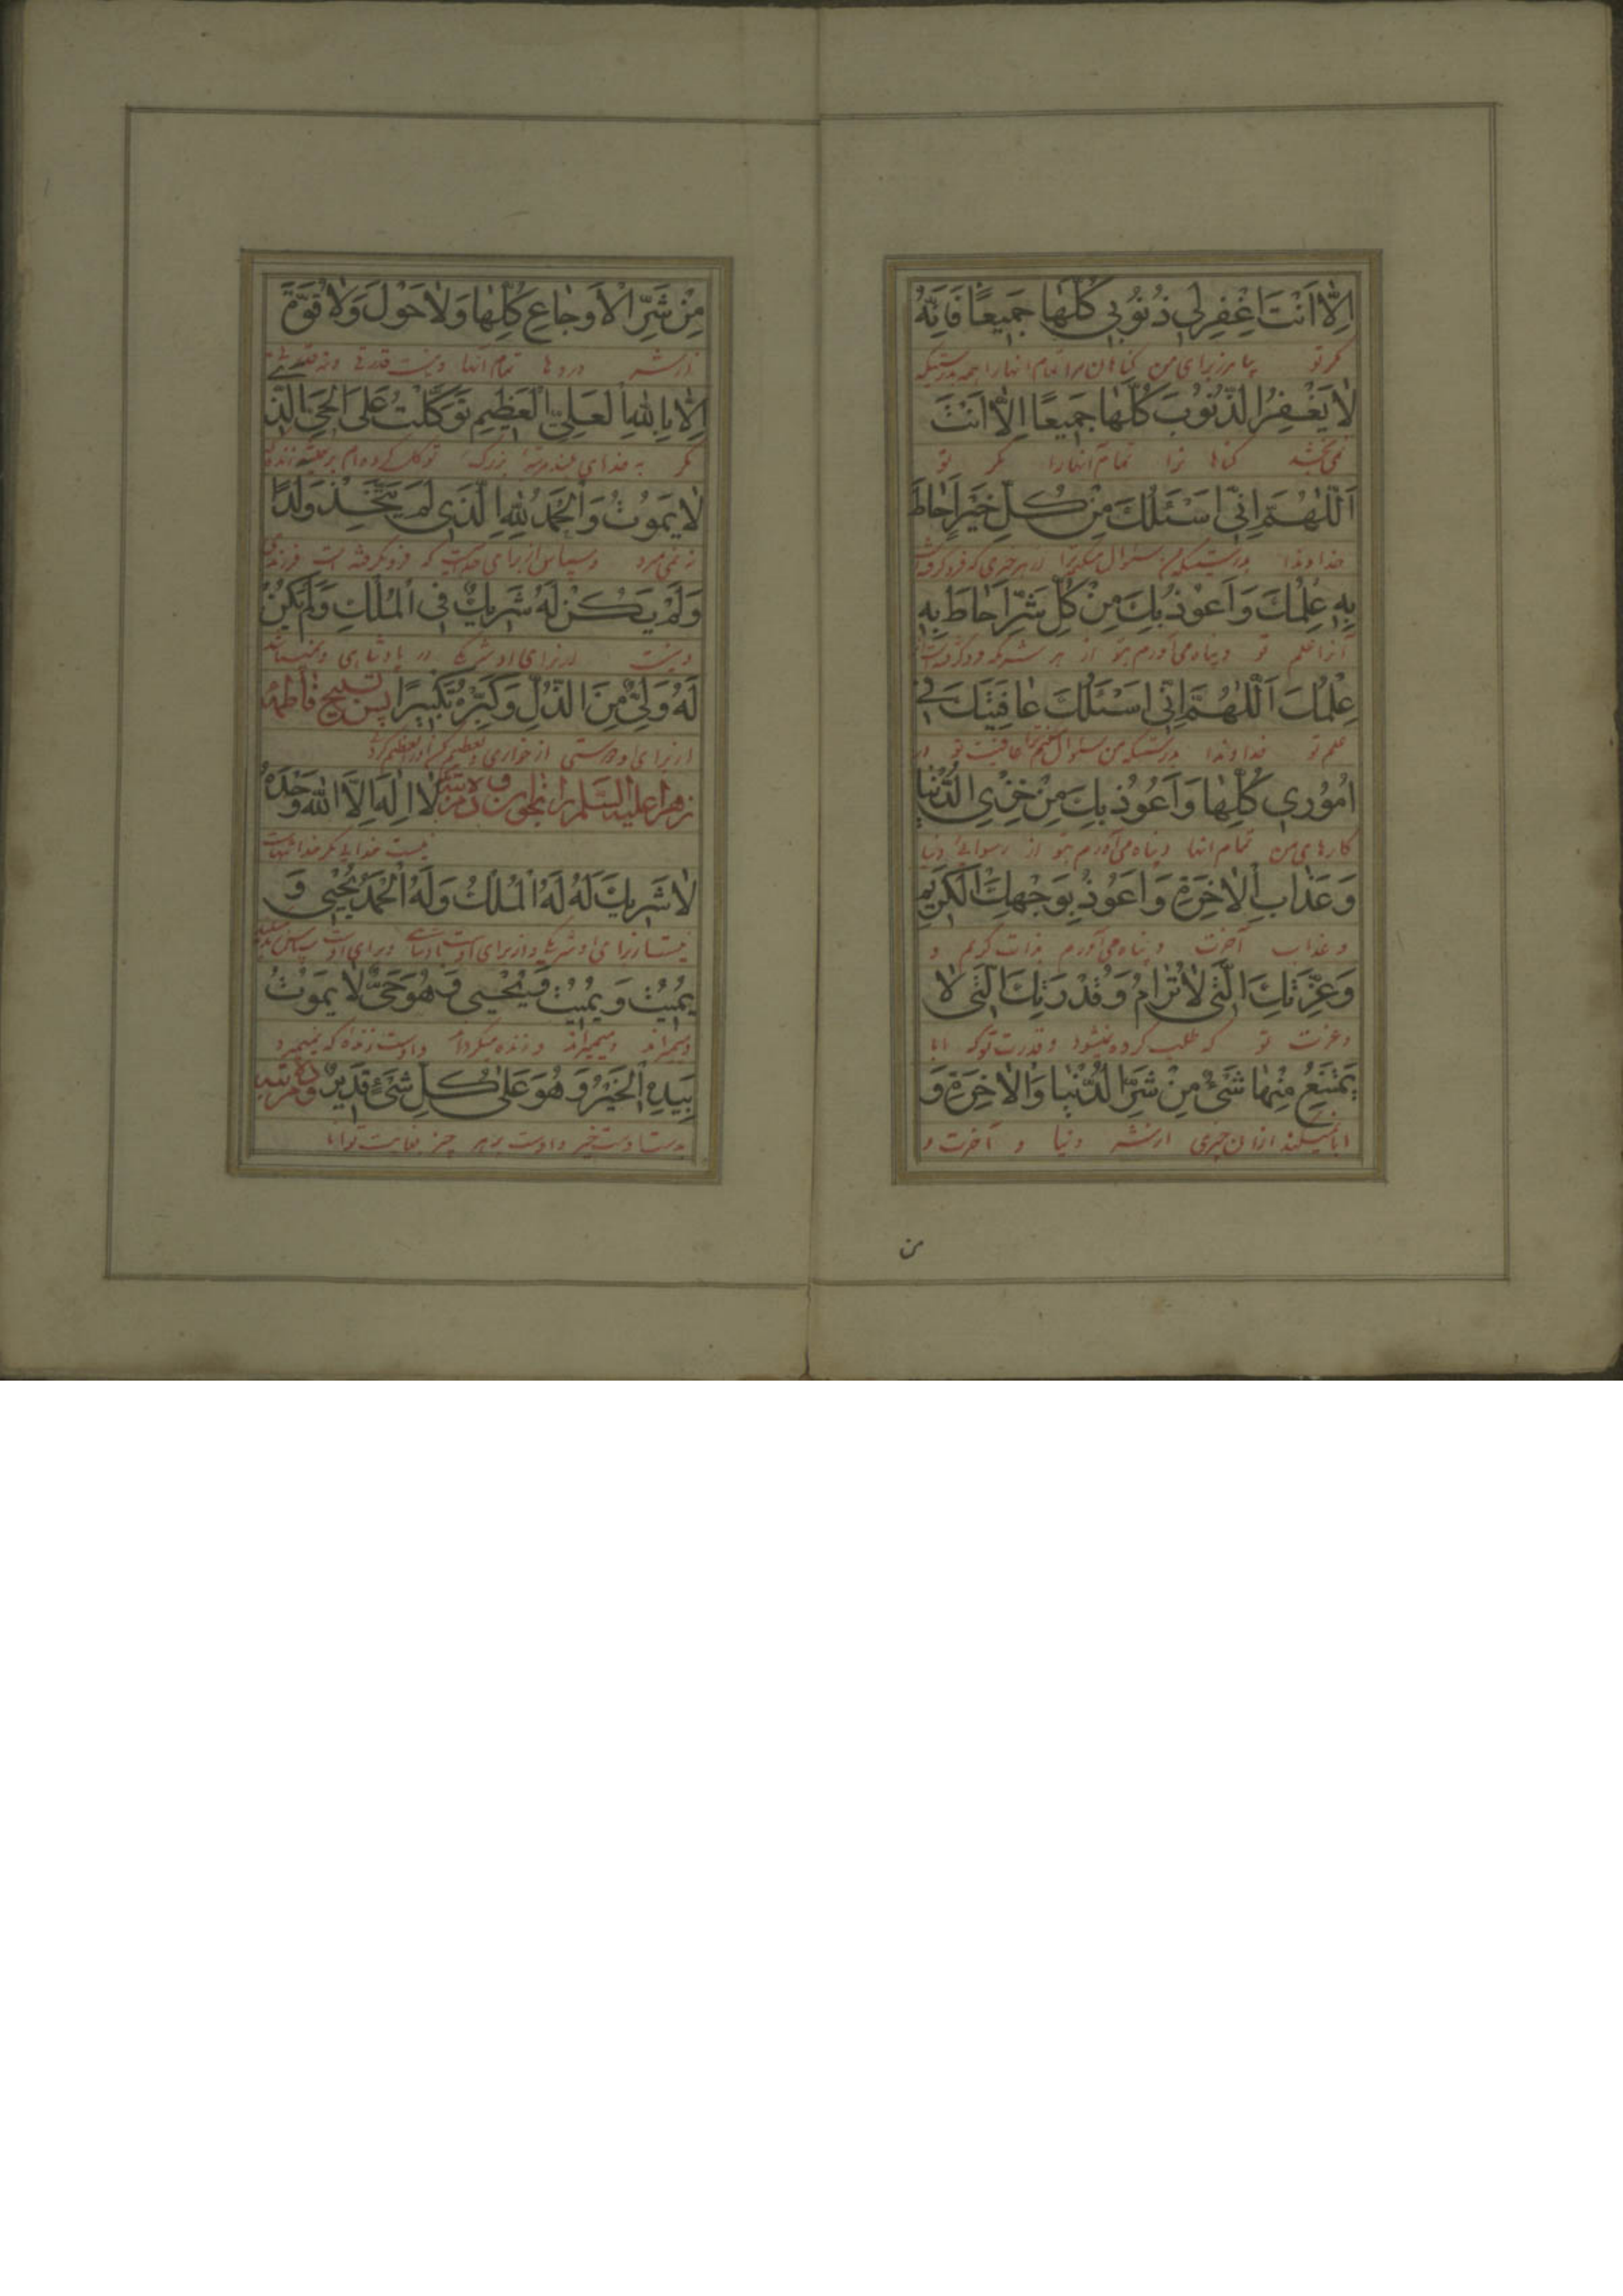 اِلّٰا اَنْتَ اِغْفِرْلی ذُنُوبی كُلَّهٰا جَمیعًا فَاِنَّهُ
مگر تو بیامرز برای من گناهان مرا تمام انها را همه بدرستیکه
لٰا يَغْفِرُ الذُّنُوبَ كُلَّهٰا جَمیعًا اِلّٰا اَنْتَ
نمی‌بخشد گناها نرا تمام آنها را مگر تو
اَللّٰهُمَّ اِنّی اَسْئَلُكَ مِنْ كُلِّ خَيْرٍ اَحٰاطَ
خداوندا بدرستیکه من سئوال میکنم ترا از هر خیری که فرو گرفته است
بِهِ عِلْمُكَ وَ اَعُوذُ بِكَ مِنْ كُلِّ شَرٍّ اَحٰاطَ بِهِ
آنرا علم تو و پناه می‌آورم بتو از هر شر که فرو گرفته است
عِلْمُكَ اَللّٰهُمَّ اِنّی اَسْئَلُكَ عٰافِيَتَكَ فی
علم تو خداوندا بدرستیکه من سئوال میکنم ترا عافیت تو در
اُمُوری كُلِّهٰا وَ اَعُوذُ بِكَ مِنْ خِزْیِ الدُّنْيٰا
کارهای من تمام انها و پناه می‌آورم بتو از رسوائی دنیا
وَ عَذٰابِ الْاٰخِرَةِ وَ اَعُوذُ بِوَجْهِكَ الْكَرِیمِ
و عذاب آخرت و پناه می‌آورم بذات کریم و
وَ عِزَّتِكَ الَّتی لٰا تُرٰامُ وَ قُدْرَتِكَ الَّتی لٰا
و عزت تو که طلب کرده نمیشود و قدرت تو که ابا
يَمْتَنِعُ مِنْهٰا شَیْءٌ مِنْ شَرِّ الدُّنْيٰا وَ الْاٰخِرَةِ وَ
ابا نمیکند ازان چیزی از شر دنیا و آخرت و
من
مِنْ شَرِّ الْاَوْجٰاعِ كُلِّهٰا وَ لٰا حَوْلَ وَ لٰا قُوَّةَ
از شر دردها تمام آنها و نیست قدرتی و نه قوتی
اِلّٰا بِاللّٰهِ الْعَلِیِّ الْعَظیمِ تَوَكَّلْتُ عَلَی الْحَیِّ الَّذی
مگر به خدای بلند مرتبه بزرگ توکل کرده‌ام بر زنده
لٰا يَمُوتُ وَ الْحَمْدُ لِلّٰهِ الَّذی لَمْ يَتَّخِذْ وَلَدًا
نمی‌میرد و سپاس از برای خدائیست که فرو نگرفته است فرزندی
وَ لَمْ يَكُنْ لَهُ شَریكٌ فِی الْمُلْكِ وَ لَمْ يَكُنْ
و نیست از برای او شریکی در پادشاهی و نمیباشد
لَهُ وَلِیٌّ مِنَ الذُّلِّ وَ كَبِّرْهُ تَكْبیرًا پس تسبیح فاطمهٔ
از برای او دوستی از خواری و تعظیم کن او را تعظیم کردنی
زهرا علیها السّلام را بخوان و ده مرتبه لٰا اِلٰهَ اِلَّا اللّٰهُ وَحْدَهُ
نیست خدائی مگر خدا تنهاست
لٰا شَریكَ لَهُ لَهُ الْمُلْكُ وَ لَهُ الْحَمْدُ يُحْیی وَ
نیست از برای او شریکی و از برای اوست پادشاهی و برای اوست سپاس
يُمیتُ وَ يُمیتُ وَ يُحْیی وَ هُوَ حَیٌّ لٰا يَمُوتُ
و میمیراند و میمیراند و زنده میگرداند و اوست زنده که نمیمیرد
بِيَدِهِ الْخَيْرُ وَ هُوَ عَلٰی كُلِّ شَیْءٍ قَدیرٌ و ده مرتبه
بدست اوست خیر و اوست بر هر چیز بغایت توانا